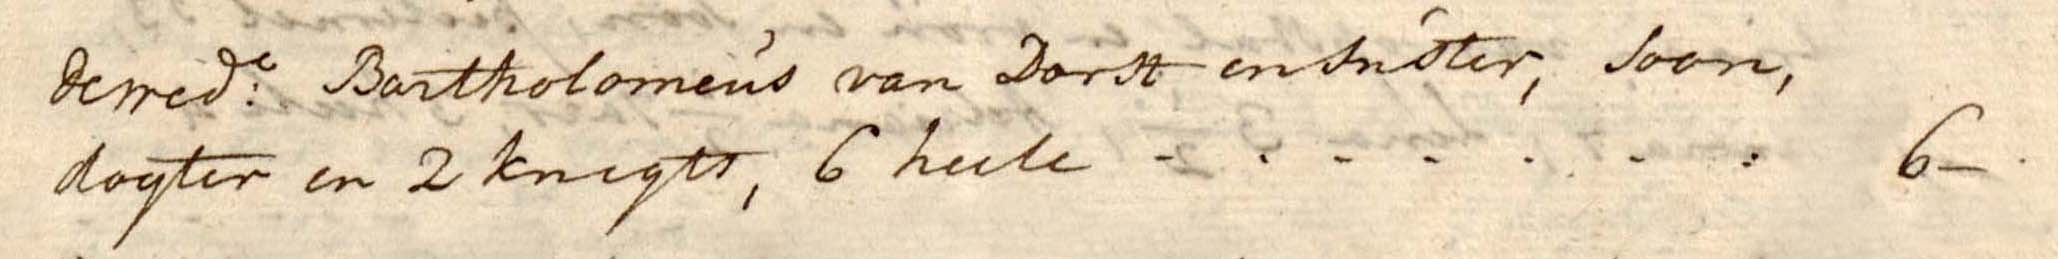 de wed:e Bartholomeús van Dorst en súster, soon,
dogter en 2 knegts, 6 heele - - - - - - : 6 -